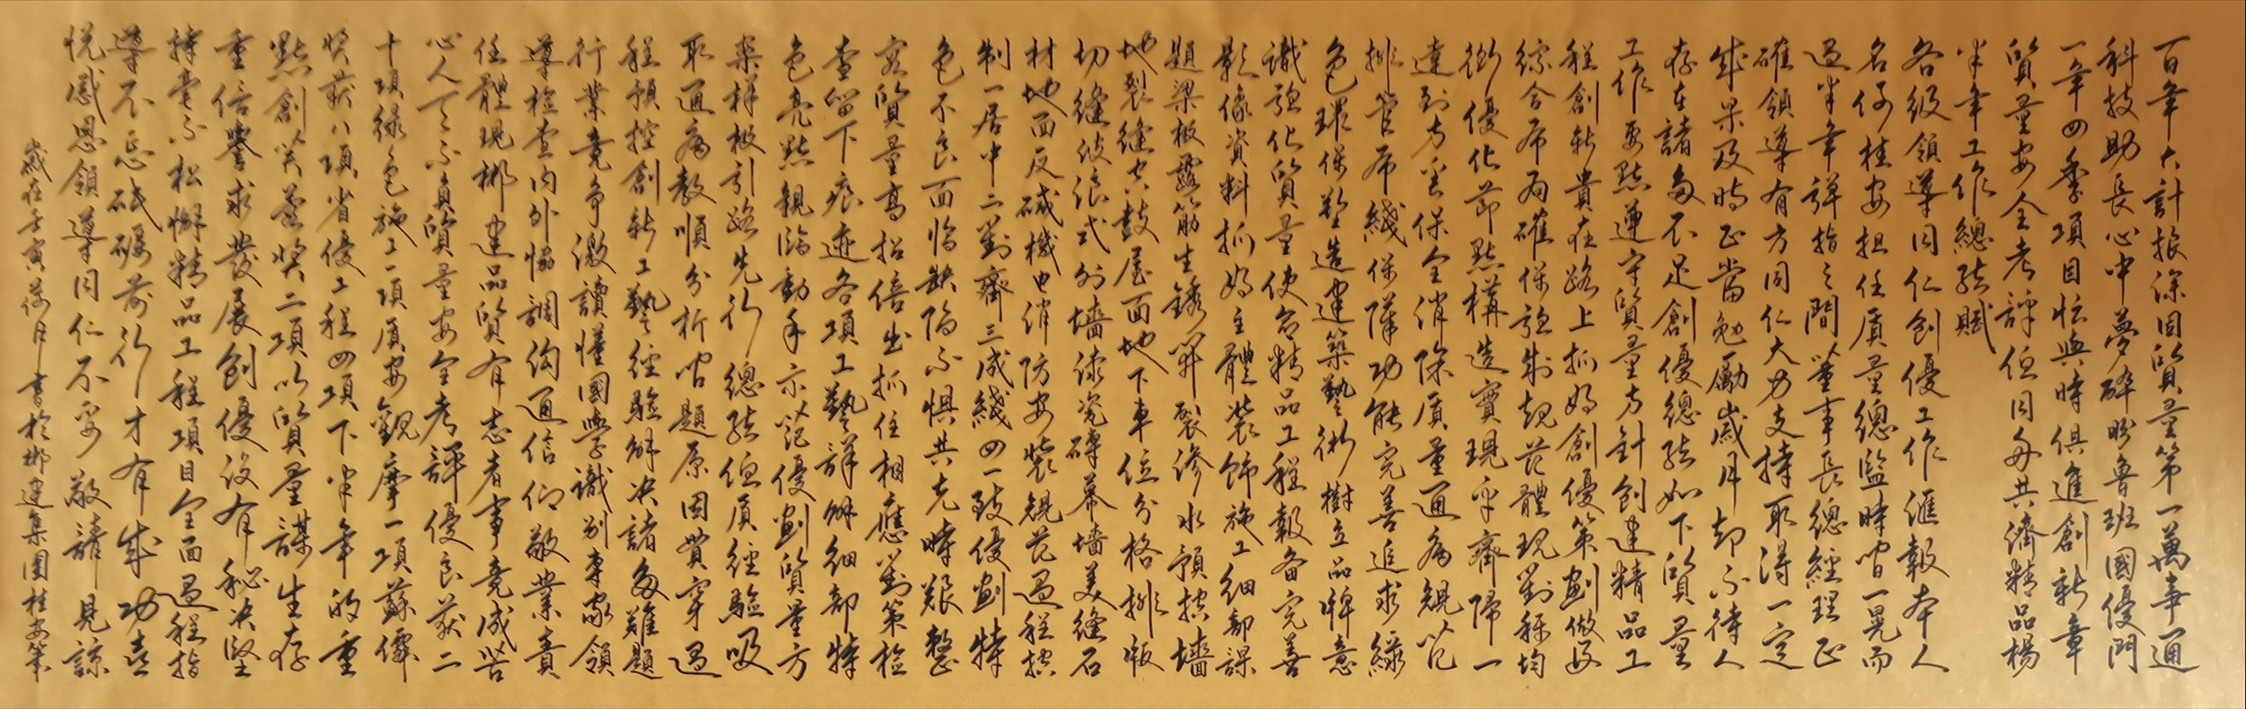 百年大計根深固質量第一萬事通
科技助長心中夢碎盼魯班國優門
一年四季項目忙與時俱進創新章
質量安全考評任同舟共濟精品揚
半年工作總結賦
各級領導同仁創優工作匯報本人
名何桂安担任質量總監時間一晃而
過半年彈指之間董事長總經理正
確領導有方同仁大力支持取得一定
成果及時正當勉勵歲月却不待人
存在諸多不足創優總結如下質量
工作要點遵守質量方針創建精品工
程創新貴在路上抓好創優策劃做好
綜合布局確保強制規范體現對稱均
衡優化節點構造實現平齊歸一
達到方圓保全消除質量通病規范
排管布綫保障功能完善追求綠
色環保塑造建築藝術樹立品牌意
識強化質量使命精品工程報备完善
影像資料抓好主體裝飾施工細部課
題梁板露筋生銹開裂滲水預控墻
地裂縫空鼓屋面地下車位分格排版
切縫縫浪式外墻漆瓷磚幕墻美縫石
材地面反碱機电消防安裝規范過程控
制一居中二對齊三成綫四一致優劃特
色不良面臨缺陷不惧共克時艱整
容質量高招倍出抓住相應對策檢
查留下痕迹各項工藝詳解細部特
色亮點親臨動手示范優劃質量方
案样板引路先行總結但質經驗吸
取通病教順分析问題原因貫穿過
程預控創新工藝經驗解决諸多難題
行業竞争激讀懂國學識别專家領
導检查内外協調溝通信仰敬業責
任體現郴建品質有志者事竟成苦
心人天不負質量安全考評優良获二
十項綠色施工一項质安觀摩一項蘇儒
奖获八項省優工程四項下半年的重
點創芙蓉奖二項以質量謀生存
重信譽求發展創優没有秘决堅
持毫不松懈精品工程項目全面過程指
導不忘砥礪前行才有成功喜
悦感恩領導同仁不妥敬請見諒
歲在壬寅荷月書於郴建集團桂安策